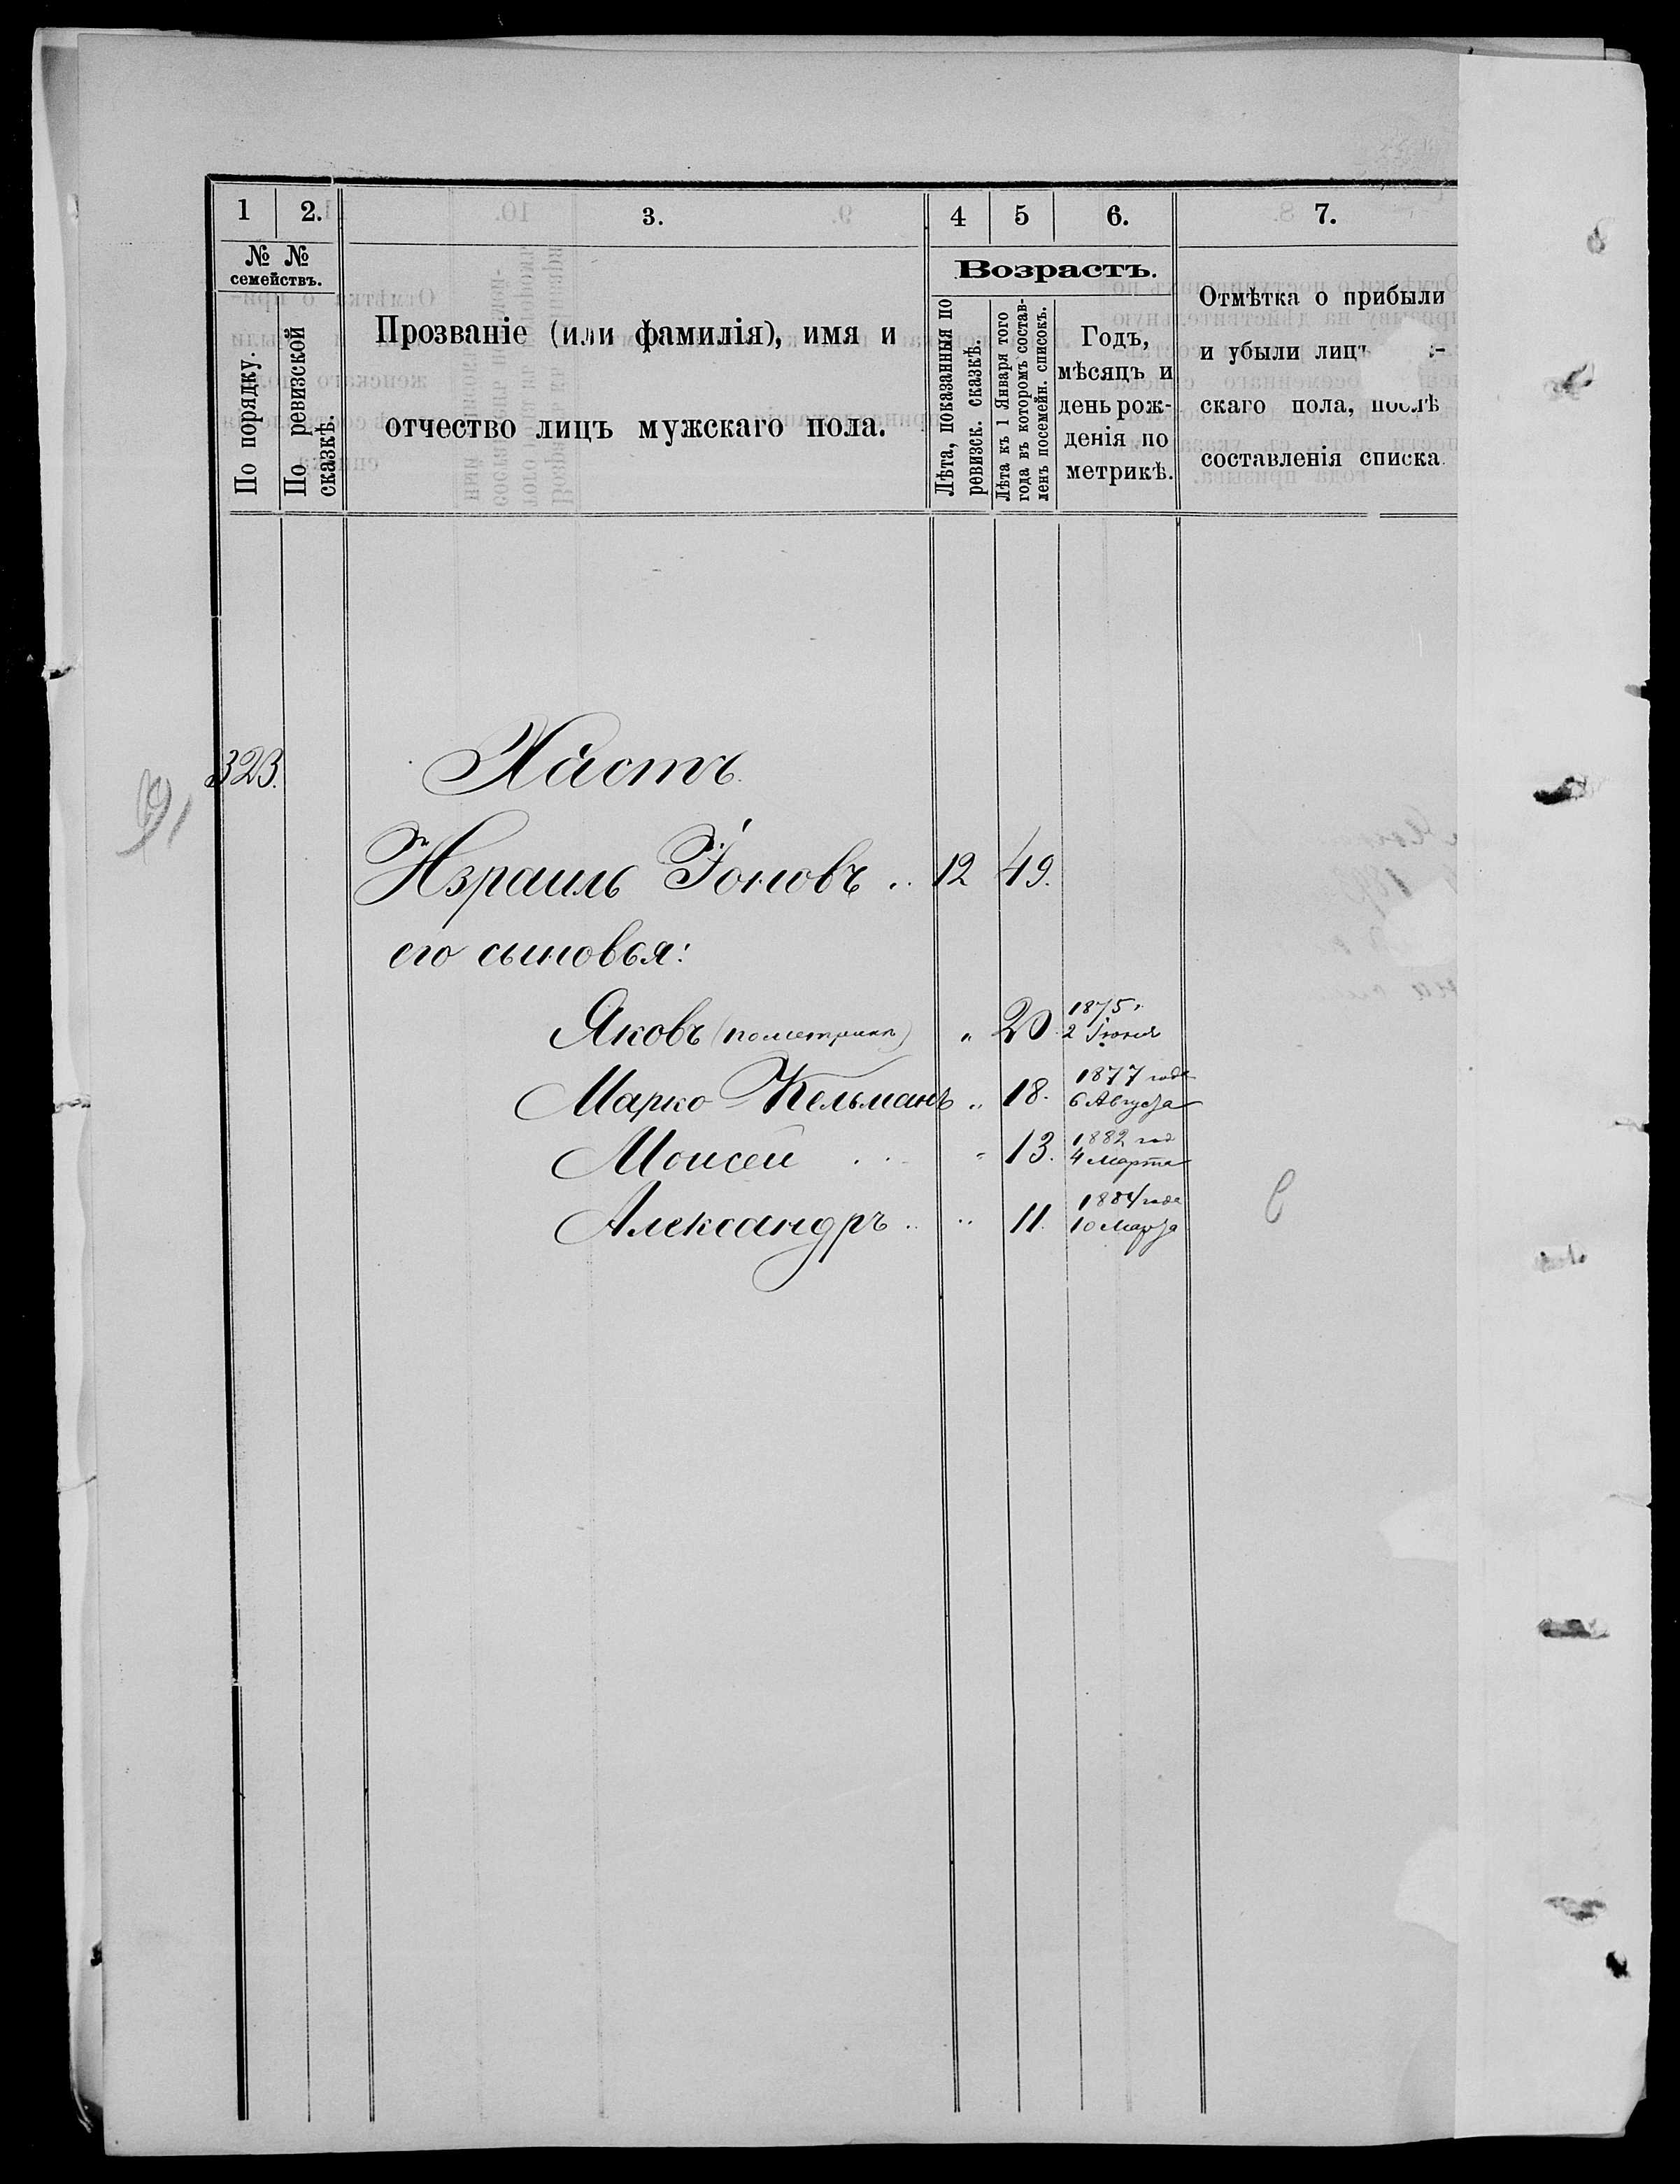 1 2. 3. 4 5 6. 7.
№ № семействъ.
По порядку.
По ревизской сказкѣ.
Прозваніе (или фамилія), имя и
отчество лицъ мужскаго пола.
Возрастъ.
Лѣта, показанныя по
ревизск. сказкѣ.
Лѣта къ 1 Января того
года въ которомъ состав-
ленъ посемейн. списокъ.
Годъ,
мѣсяцъ и
день рож-
денія по
метрикѣ.
Отмѣтка о прибыли
и убыли лицъ
скаго пола, послѣ
составленія списка.
323. Хастъ.
Израиль Іоновъ .. 12 49.
его сыновья:
Яковъ (по метрикѣ) " 20. 1875 г.
2 Іюня
Марко-Кельманъ " 18. 1877 года
6 Августа
Моисей . . . " 13. 1882 год
4 Марта
Александръ .. " 11. 1884 года
10 Марта